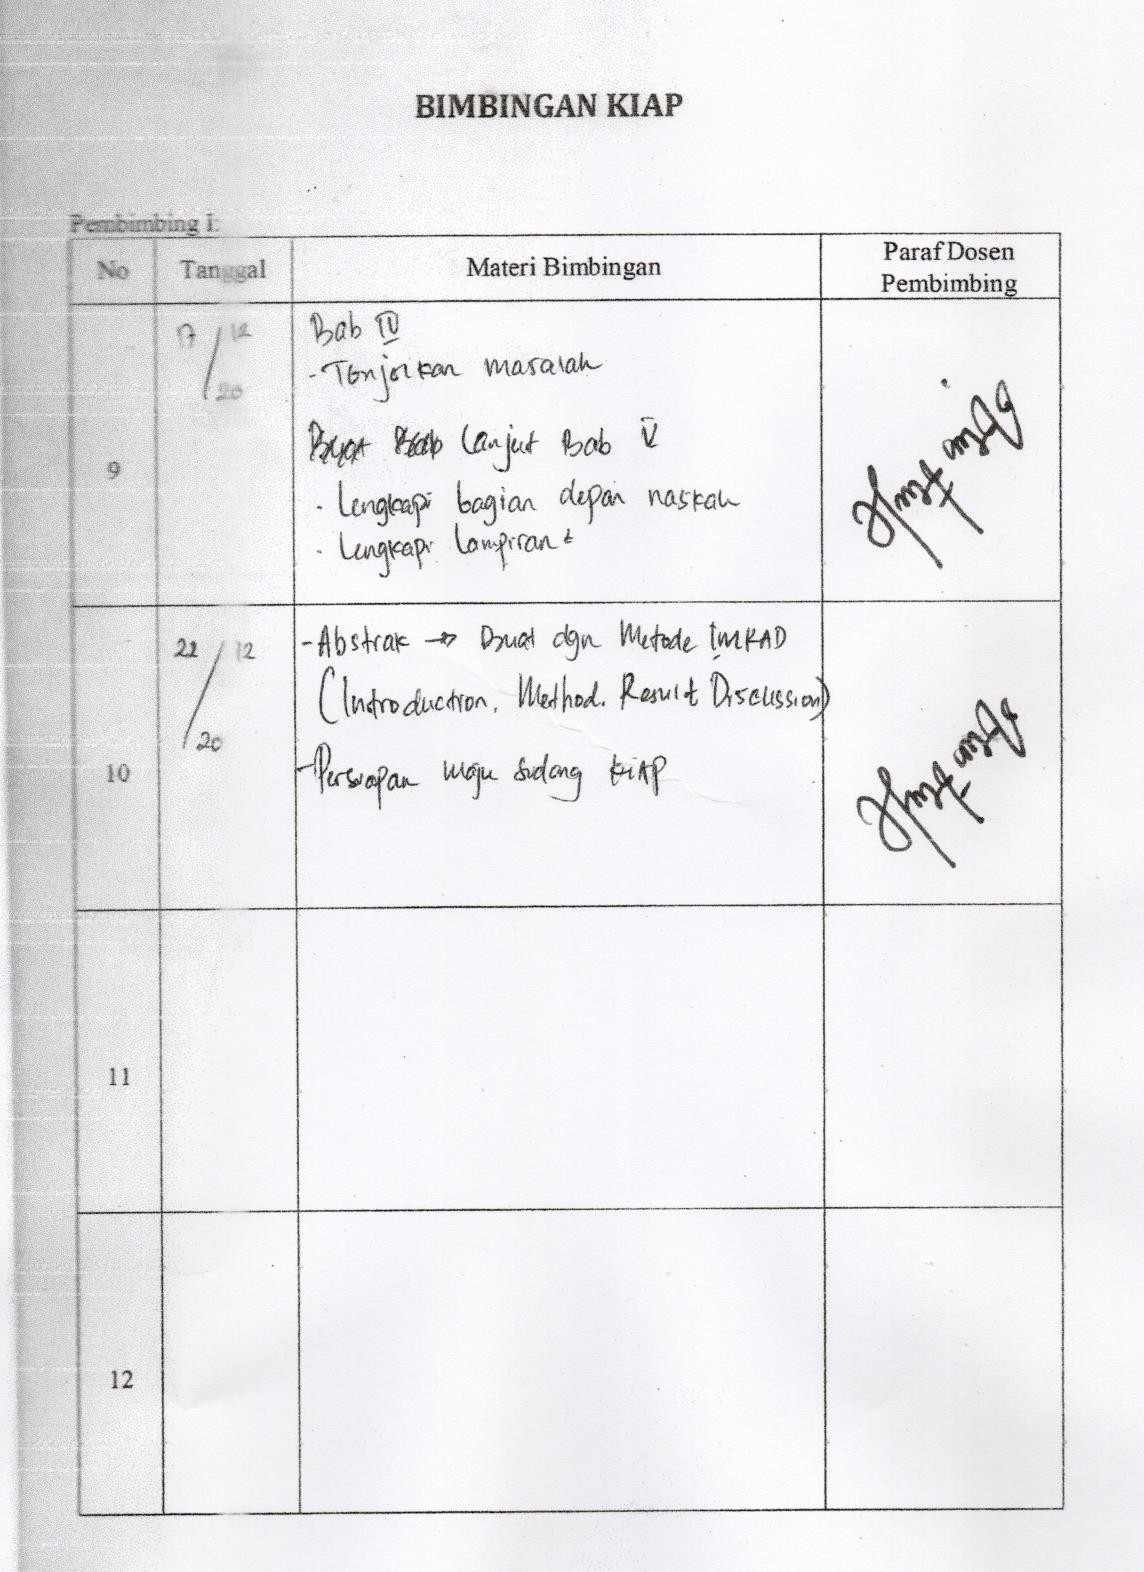 BIMBINGAN KIAP
Pembimbing I:
No Tanggal Materi Bimbingan Paraf Dosen Pembimbing
9
17/12
20
Bab IV
- Tonjolkan masalah
Lanjut Bab V
- Lengkapi bagian depan naskah
- Lengkapi Lampiran²
10
22/12
20
- Abstrak → Buat dgn Metode IMRAD
(Introduction, Method. Result Discussion)
- Persiapan maju sidang KIAP
11
12